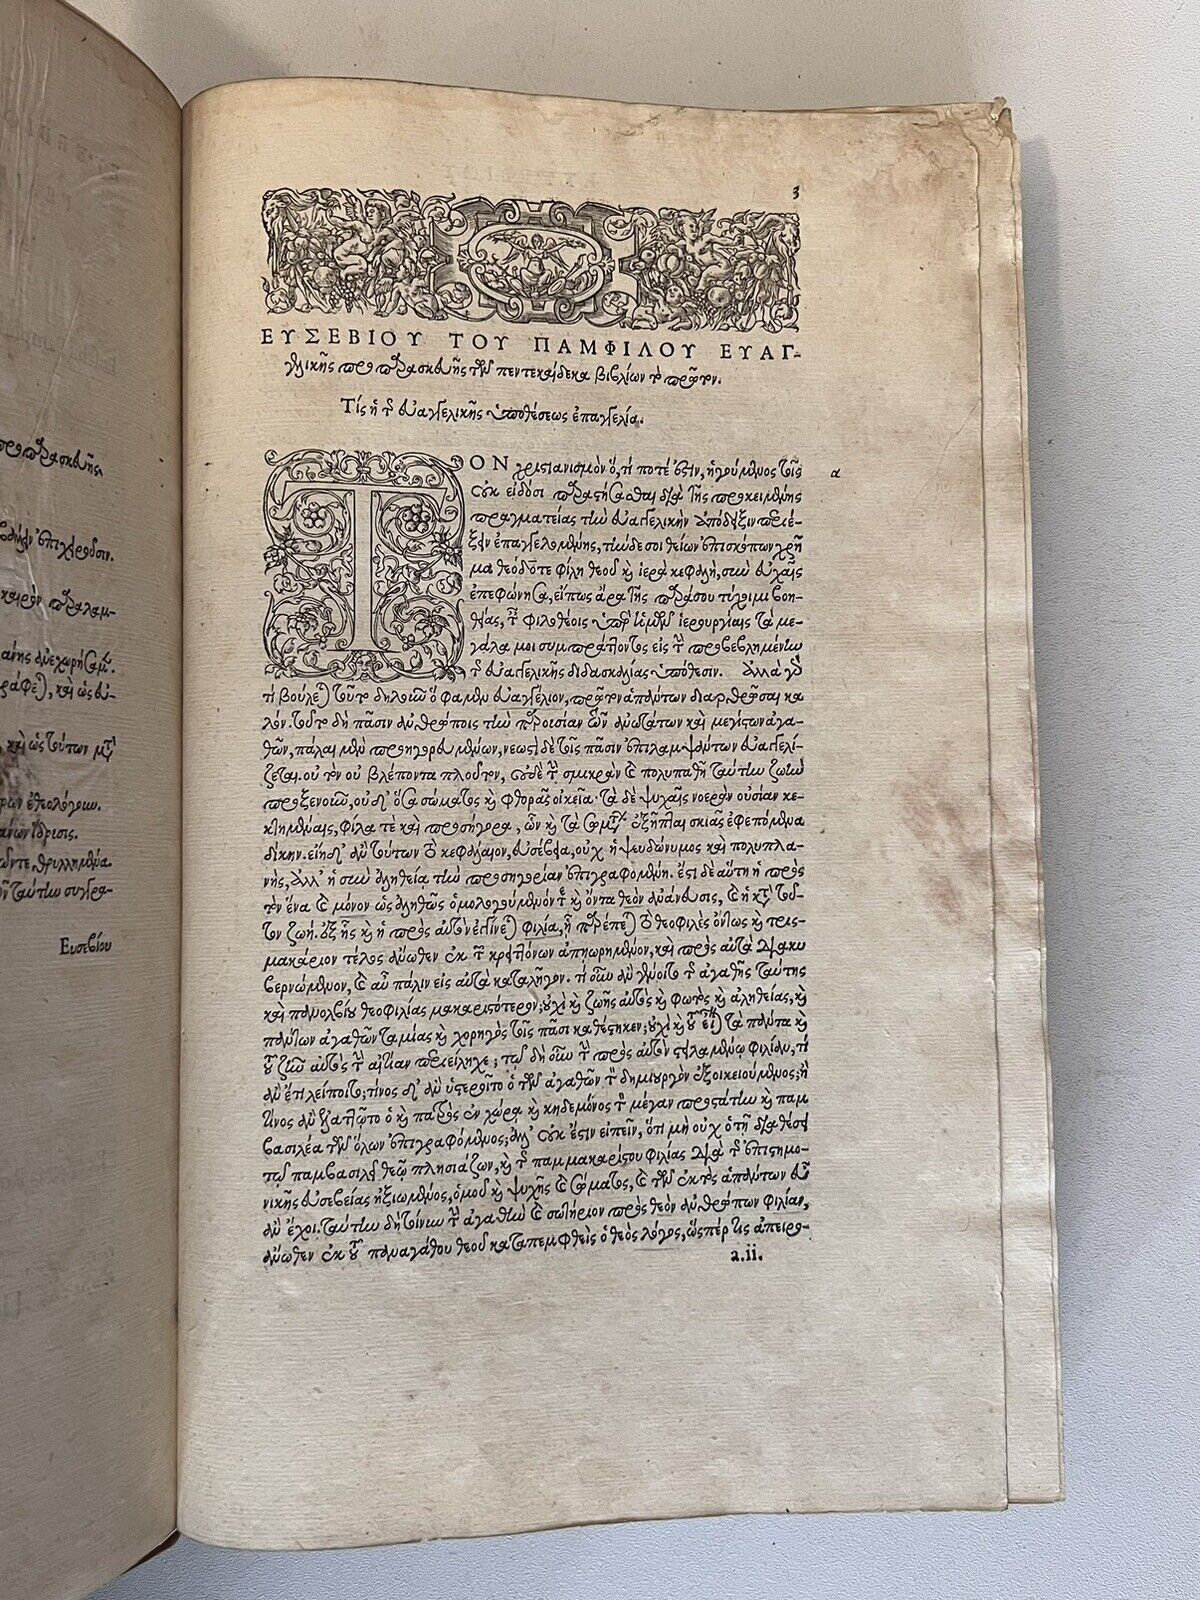 προπαρασκευῆς.
ἐπιχειροῦσιν.
καιρὸν παραλαμ-
ἀνεχωρήσαμεν.
καὶ ὡς εὐ-
καὶ ὡς τούτων
ἐθεολόγουν.
θρυλλημένα
ταύτην συγγρα-
Ευσεβίου
3
ΕΥΣΕΒΙΟΥ ΤΟΥ ΠΑΜΦΙΛΟΥ ΕΥΑΓ-
γελικῆς προπαρασκευῆς τῶν πεντεκαίδεκα βιβλίων τὸ πρῶτον.
Τίς ἡ τῆς εὐαγγελικῆς ὑποθέσεως ἐπαγγελία.
α
ΤΟΝ χριστιανισμὸν ὅ, τί ποτέ ἐστιν, ἡγούμενος τοῖς
οὐκ εἰδόσι παραστήσασθαι διὰ τῆς προκειμένης
πραγματείας τὴν εὐαγγελικὴν ἀπόδειξιν περιέ-
ξειν ἐπαγγελομένης, τήνδε σοι θείων ἐπισκόπων χρῆ
μα θεόδοτε φίλη θεοῦ καὶ ἱερὰ κεφαλὴ, σὺν εὐχαῖς
ἐπεφώνησα, εἴπως ἄρα τῆς παρὰ σοῦ τύχοιμι βοη-
θείας, ταῖς φιλοθέοις ὑπὲρ ἡμῶν ἱερουργίαις τὰ με-
γάλα μοι συμπράττοντος εἰς τὴν προβεβλημένην
τῆς εὐαγγελικῆς διδασκαλίας ὑπόθεσιν. Ἀλλὰ γὰρ
τί βούλεται τοῦτο δηλοῦν ὅ φαμεν εὐαγγέλιον, πρῶτον ἁπάντων διαρθρῶσαι κα-
λόν. τοῦτο δὴ πᾶσιν ἀνθρώποις τὴν παρουσίαν τῶν ἀνωτάτων καὶ μεγίστων ἀγα-
θῶν, πάλαι μὲν προηγορευμένων, νεωστὶ δὲ τοῖς πᾶσιν ἐπιλαμψάντων εὐαγγελί-
ζεται. οὐ τὸν οὐ βλέποντα πλοῦτον, οὐδὲ τὴν σμικρὰν καὶ πολυπαθῆ ταύτην ζωὴν
προξενοῦν, οὐδ' ὅσα σώματος καὶ φθορᾶς οἰκεῖα· τὰ δὲ ψυχαῖς νοερὰν οὐσίαν κε-
κτημέναις, φίλα τὲ καὶ προσήγορα, ὧν καὶ τὰ σωμάτων ἐξῆπται σκιᾶς ἐφεπόμενα
δίκην. εἴη δ' ἂν τούτων τὸ κεφάλαιον, εὐσέβεια, οὐχ ἡ ψευδώνυμος καὶ πολυπλα-
νὴς, ἀλλ' ἡ σὺν ἀληθείᾳ τὴν προσηγορίαν ἐπιγραφομένη. ἔστι δὲ αὕτη ἡ πρὸς
τὸν ἕνα καὶ μόνον ὡς ἀληθῶς ὁμολογούμενόν τε καὶ ὄντα θεὸν ἀνάνευσις, καὶ ἡ κατὰ τοῦ-
τον ζωή. ἐξ ἧς καὶ ἡ πρὸς αὐτὸν ἐγγίνεται φιλία, ᾗ παρέπεται τὸ θεοφιλὲς ὄντως καὶ τρισ-
μακάριον τέλος ἄνωθεν ἐκ τῶν κρειττόνων ἀπῃωρημένον, καὶ πρὸς αὐτὰ διακυ
βερνώμενον, καὶ αὖ πάλιν εἰς αὐτὰ καταλῆγον. τί οὖν ἂν γένοιτο τῆς ἀγαθῆς ταύτης
καὶ πανολβίου θεοφιλίας μακαριστότερον; οὐχὶ καὶ ζωῆς αὐτὸς καὶ φωτὸς καὶ ἀληθείας, καὶ
πάντων ἀγαθῶν ταμίας καὶ χορηγὸς τοῖς πᾶσι καθέστηκεν; οὐχὶ καὶ τοῦ εἶναι τὰ πάντα καὶ
τοῦ ζῆν αὐτὸς τὴν αἰτίαν περιείληφε; τῷ δὴ οὖν τὴν πρὸς αὐτὸν στειλαμένῳ φιλίαν, τί
ἂν ἔτι λείποιτο; τίνος δ' ἂν ὑστεροῖτο ὁ τῶν ἀγαθῶν τὸν δημιουργὸν ἐξοικειούμενος; ἢ
τίνος ἂν ἐλαττῷτο ὁ καὶ πατρὸς ἐν χώρᾳ καὶ κηδεμόνος τὸν μέγαν προστάτην καὶ παμ
βασιλέα τῶν ὅλων ἐπιγραφόμενος; ἀλλ' οὐκ ἔστιν εἰπεῖν, ὅτι μὴ οὐχ ὁ τῇ διαθέσει
τῷ παμβασιλεῖ θεῷ πλησιάζων, καὶ τῆς παμμακαρίστου φιλίας διὰ τῆς ἐπιστημο-
νικῆς εὐσεβείας ἠξιωμένος, ὁμοῦ καὶ ψυχῆς καὶ σώματος, καὶ τῶν ἐκτὸς ἁπάντων εὖ
ἂν ἔχοι. ταύτην δῆτα τὴν ἀγαθὴν καὶ σωτήριον πρὸς θεὸν ἀνθρώπων φιλίαν,
ἄνωθεν ἐκ τοῦ παναγάθου θεοῦ καταπεμφθεὶς ὁ θεὸς λόγος, ὥσπέρ τις ἀπειρο-
a.ii.